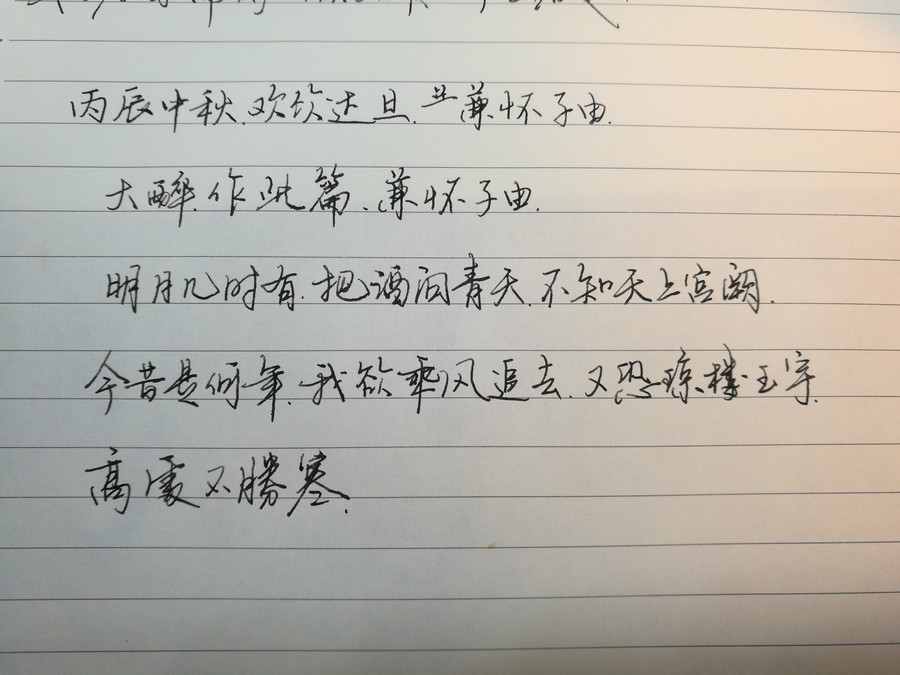 丙辰中秋.欢饮达旦.兼怀子由.
大醉.作此篇.兼怀子由.
明月几时有.把酒问青天.不知天上宫阙.
今昔是何年.我欲乘风追去.又恐琼楼玉宇.
高處不勝寒.